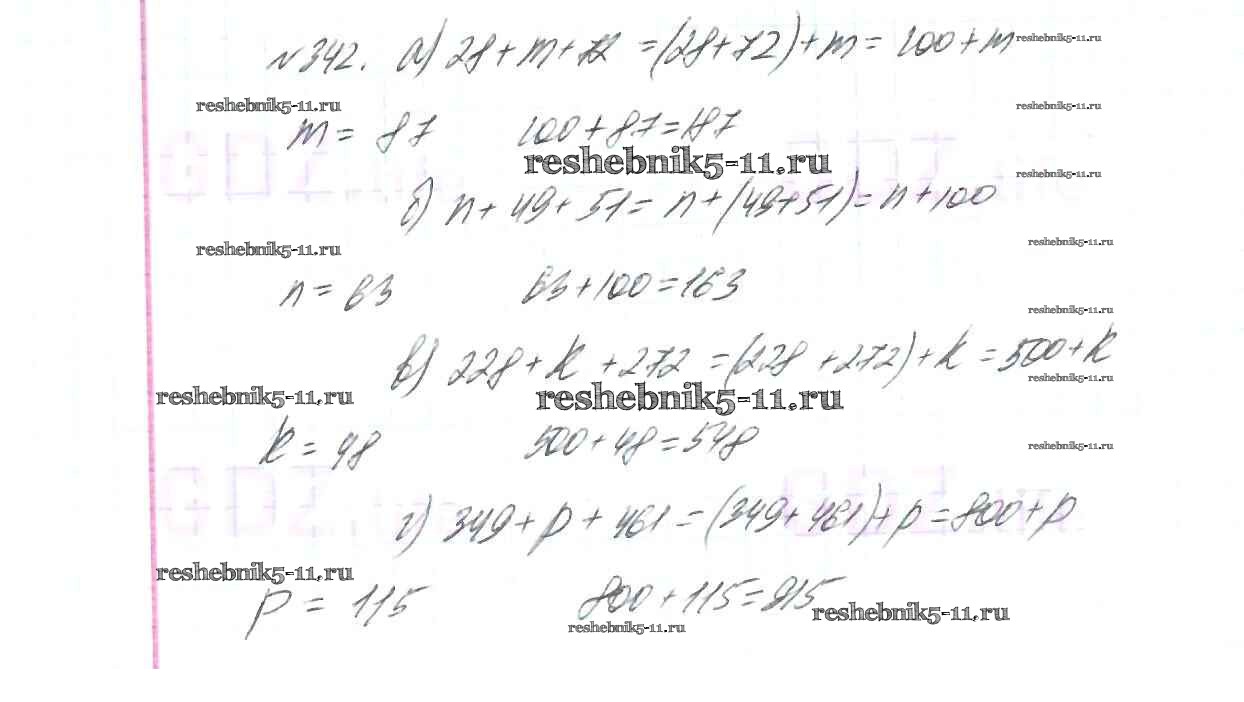 №342. а) 28+m+72 =(28+72)+m= 100+m reshebnik5-11.ru
reshebnik5-11.ru reshebnik5-11.ru
m= 87 100+87=187
reshebnik5-11.ru reshebnik5-11.ru
б) n+49+51= n+(49+51)= n+100
reshebnik5-11.ru reshebnik5-11.ru
n= 63 63+100=163
reshebnik5-11.ru
в) 228+k +272 =(228 +272)+k =500+k
reshebnik5-11.ru
reshebnik5-11.ru reshebnik5-11.ru
k= 48 500+48=548 reshebnik5-11.ru
г) 349+p+461=(349+461)+p=800+p
reshebnik5-11.ru
p= 115 800+115=915 reshebnik5-11.ru
reshebnik5-11.ru